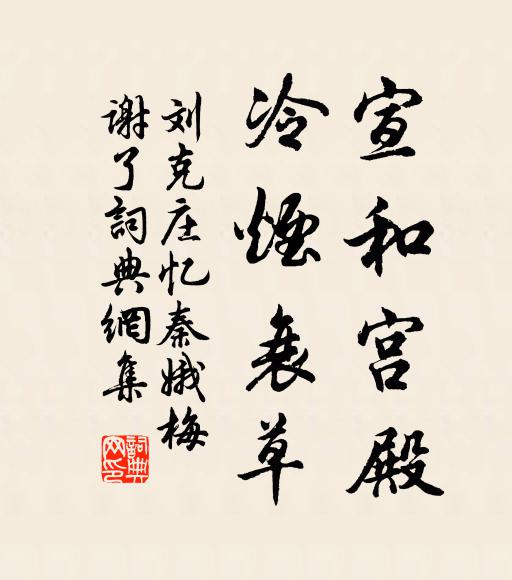 宣和宫殿
冷煙衰草
刘克庄忆秦娥梅
谢了詞典網集
詞典
网印